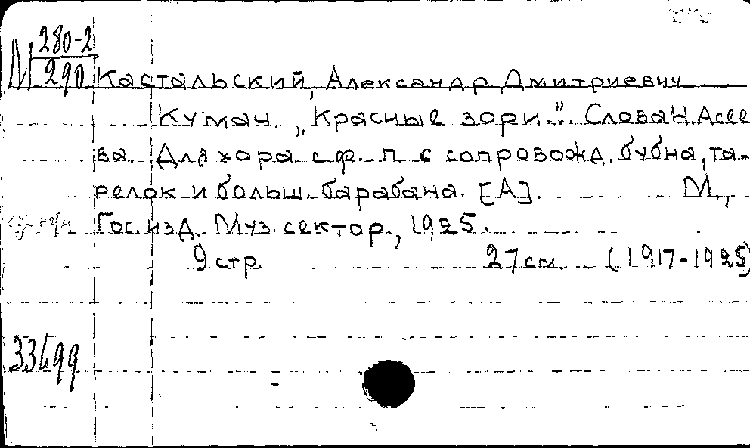 М 280-2
290
Кастальский, Александр Дмитриевич
Кумач. „Красные зори." Слова Н. Асее
ва. Для хора с ф.-п. с сопровожд. бубна, та-
релок и больш. барабана. [А]. М.,
Гос. изд. Муз. сектор, 1925.
9 стр. 27 см. (1917-1925)
33699